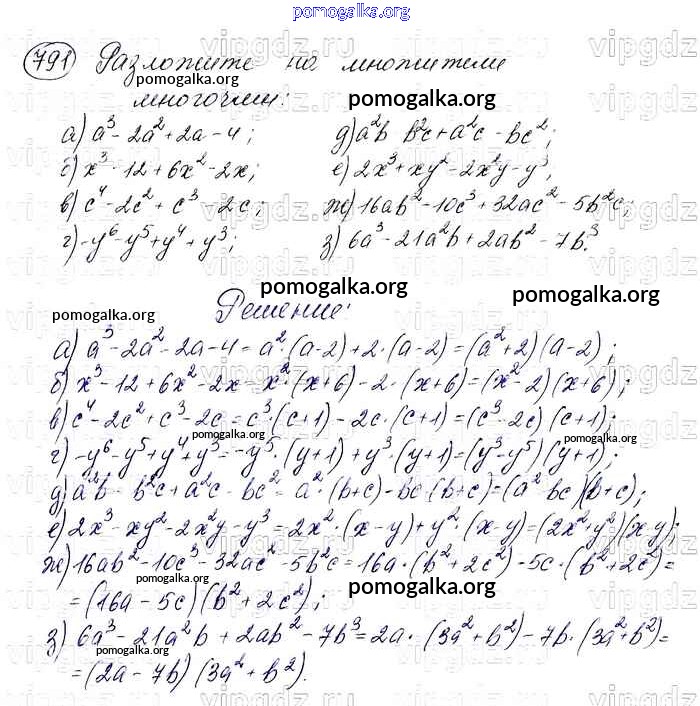 pomogalka.org
791 Разложите на множители
pomogalka.org
многочлен: pomogalka.org
а) a³ - 2a² + 2a - 4; д) a²b b²c + a²c - bc²;
б) x³ - 12 + 6x² - 2x; е) 2x³ + xy² - 2x²y - y³;
в) c⁴ - 2c² + c³ - 2c; ж) 16ab² - 10c³ + 32ac² - 5b²c;
г) -y⁶ - y⁵ + y⁴ + y³; з) 6a³ - 21a²b + 2ab² - 7b³.
pomogalka.org Решение: pomogalka.org pomogalka.org
а) a³ - 2a² - 2a - 4 = a²·(a-2) + 2·(a-2) = (a²+2)(a-2);
б) x³ - 12 + 6x² - 2x = x²·(x+6) - 2·(x+6) = (x²-2)(x+6);
в) c⁴ - 2c² + c³ - 2c = c³·(c+1) - 2c·(c+1) = (c³ 2c)(c+1);
pomogalka.org pomogalka.org
г) -y⁶ - y⁵ + y⁴ + y³ = -y⁵·(y+1) + y³·(y+1) = (y³-y⁵)(y+1);
д) a²b - b²c + a²c - bc² = a²·(b+c) - bc·(b+c) = (a² bc)(b+c);
pomogalka.org
е) 2x³ - xy² - 2x²y - y³ = 2x²·(x-y) + y²·(x-y) = (2x²+y²)(x-y);
ж) 16ab² - 10c³ - 32ac² - 5b²c = 16a·(b²+2c²) - 5c·(b²+2c²) =
pomogalka.org pomogalka.org
= (16a - 5c)(b²+2c²);
з) 6a³ - 21a²b + 2ab² - 7b³ = 2a·(3a²+b²) - 7b·(3a²+b²) =
pomogalka.org
= (2a - 7b)(3a²+b²).